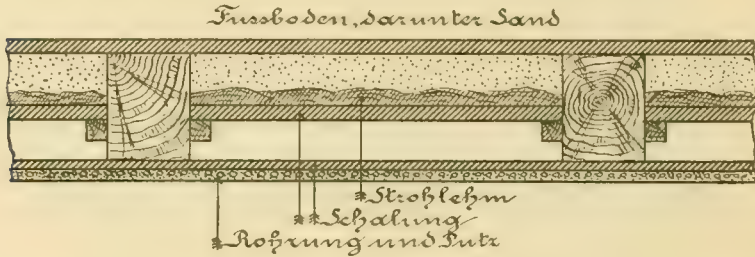 Fussboden, darunter Sand
Strohlehm
Schalung
Rohrung und Putz